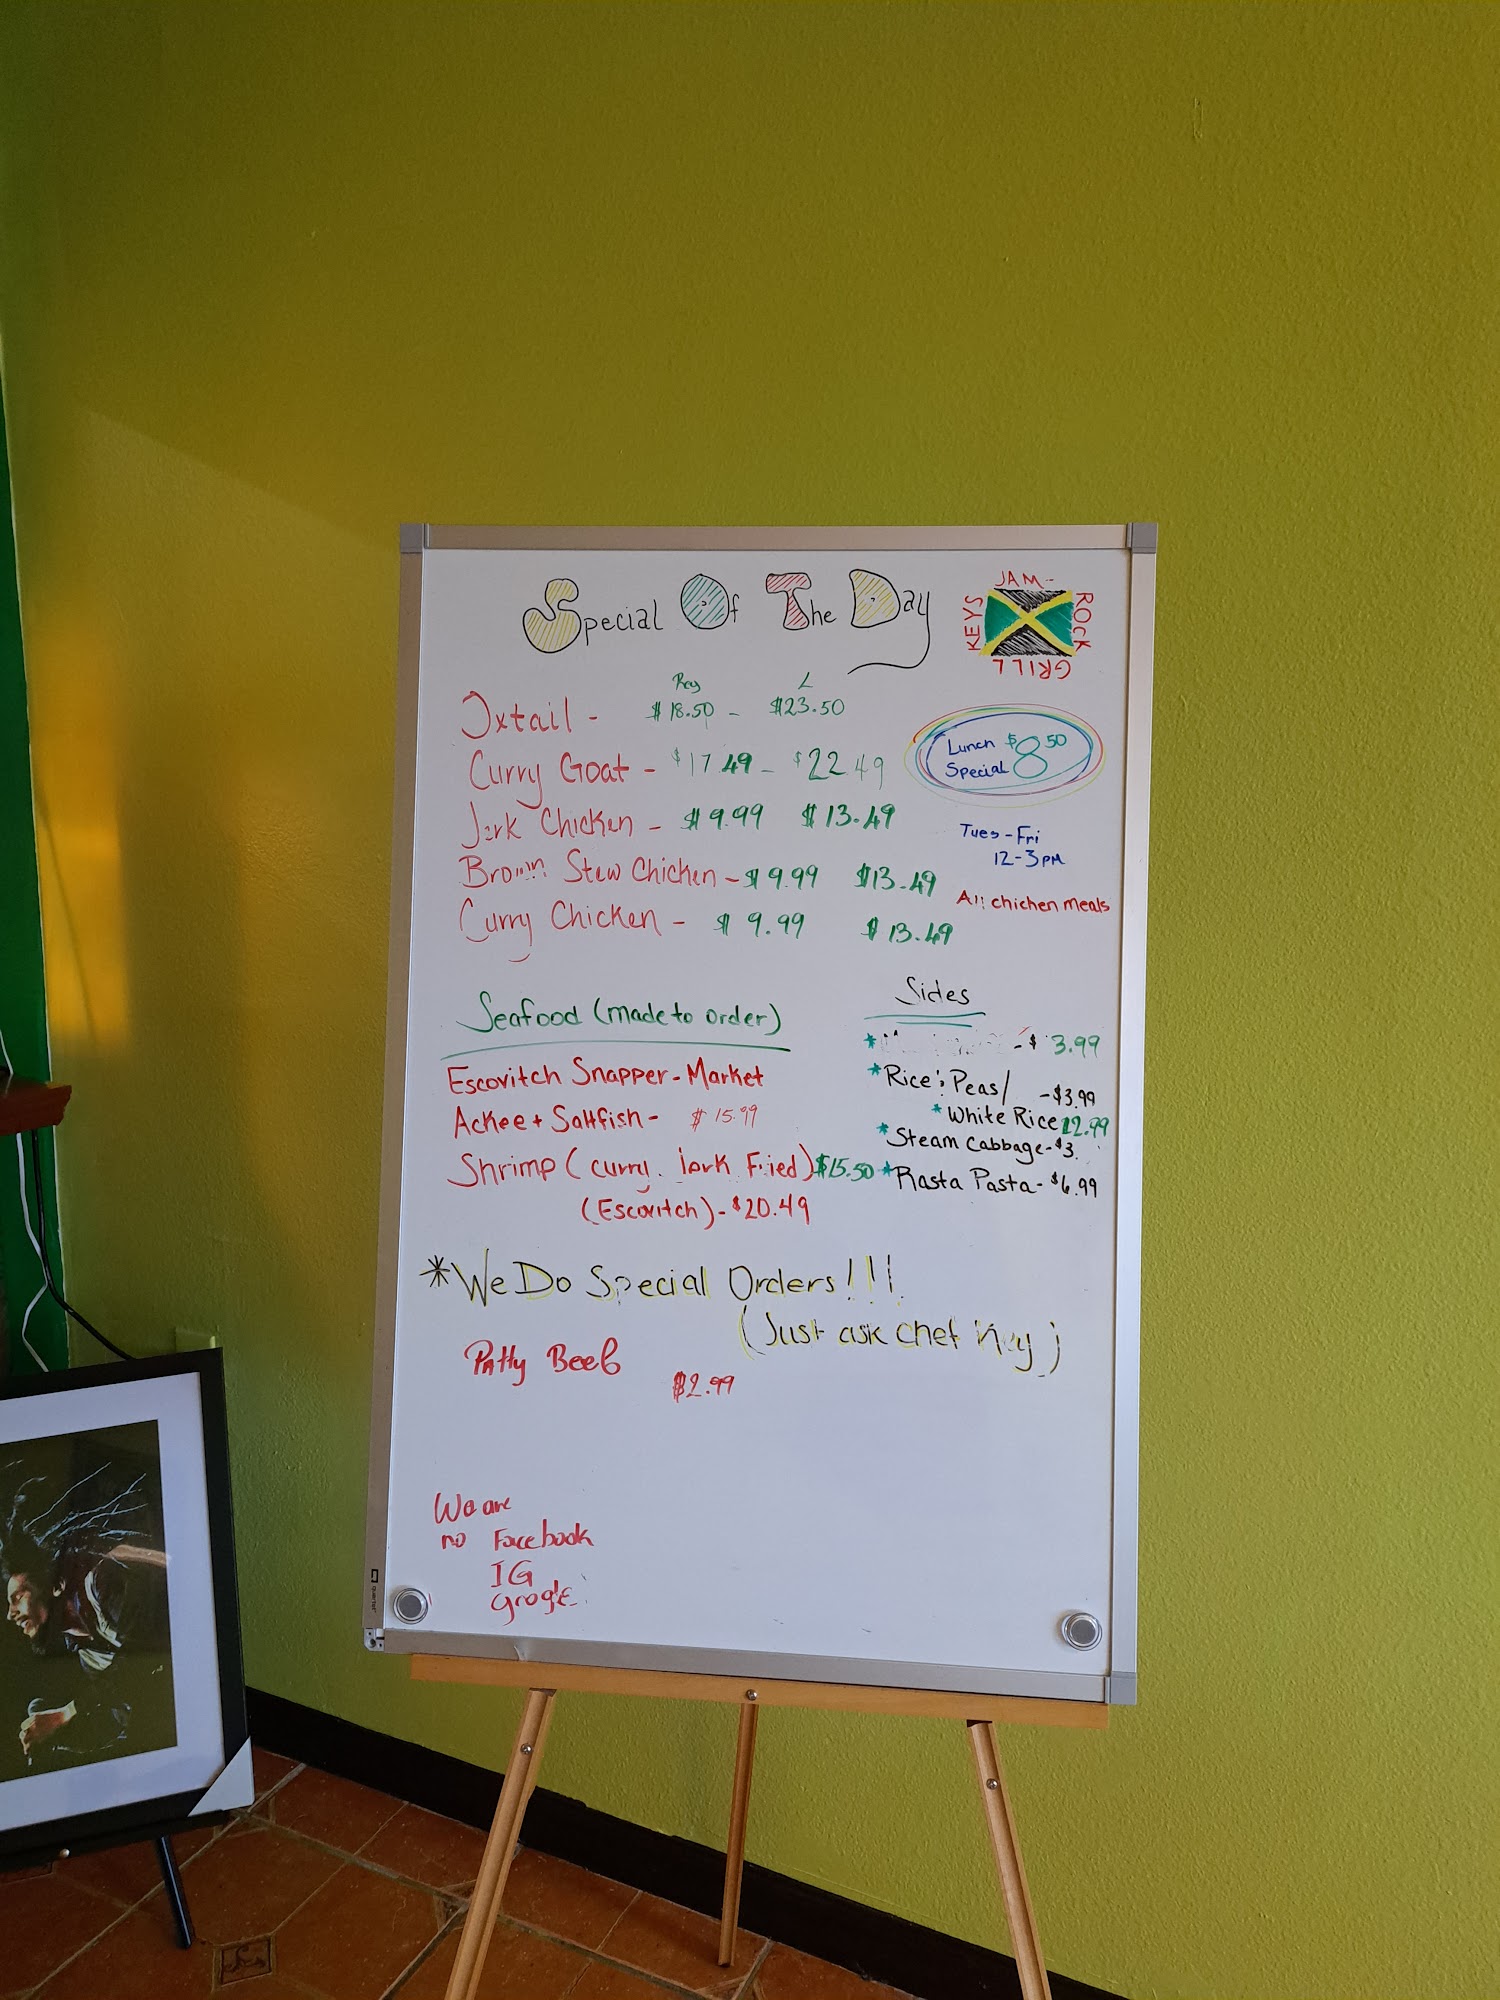 Special Of The Day
KEYS JAM- ROCK GRILL
Reg L
Oxtail - $18.50 - $23.50
Curry Goat - $17.49 - $22.49
Jerk Chicken - $9.99 $13.49
Brown Stew Chicken - $9.99 $13.49
Curry Chicken - $9.99 $13.49
Lunch $8.50
Special
Tues - Fri
12-3PM
All chichen meals
Seafood (made to order)
Escovitch Snapper - Market
Ackee + Saltfish - $15.99
Shrimp (curry. jerk Fried) $15.50
(Escovitch) - $20.49
Sides
* - $3.99
*Rice & Peas/ - $3.99
*White Rice 2.99
*Steam Cabbage - $3.
*Rasta Pasta - $6.99
*We Do Special Orders!!!
(Just ask chef Key)
Patty Beef
$2.99
We are
no Facebook
IG
google
QUARTET